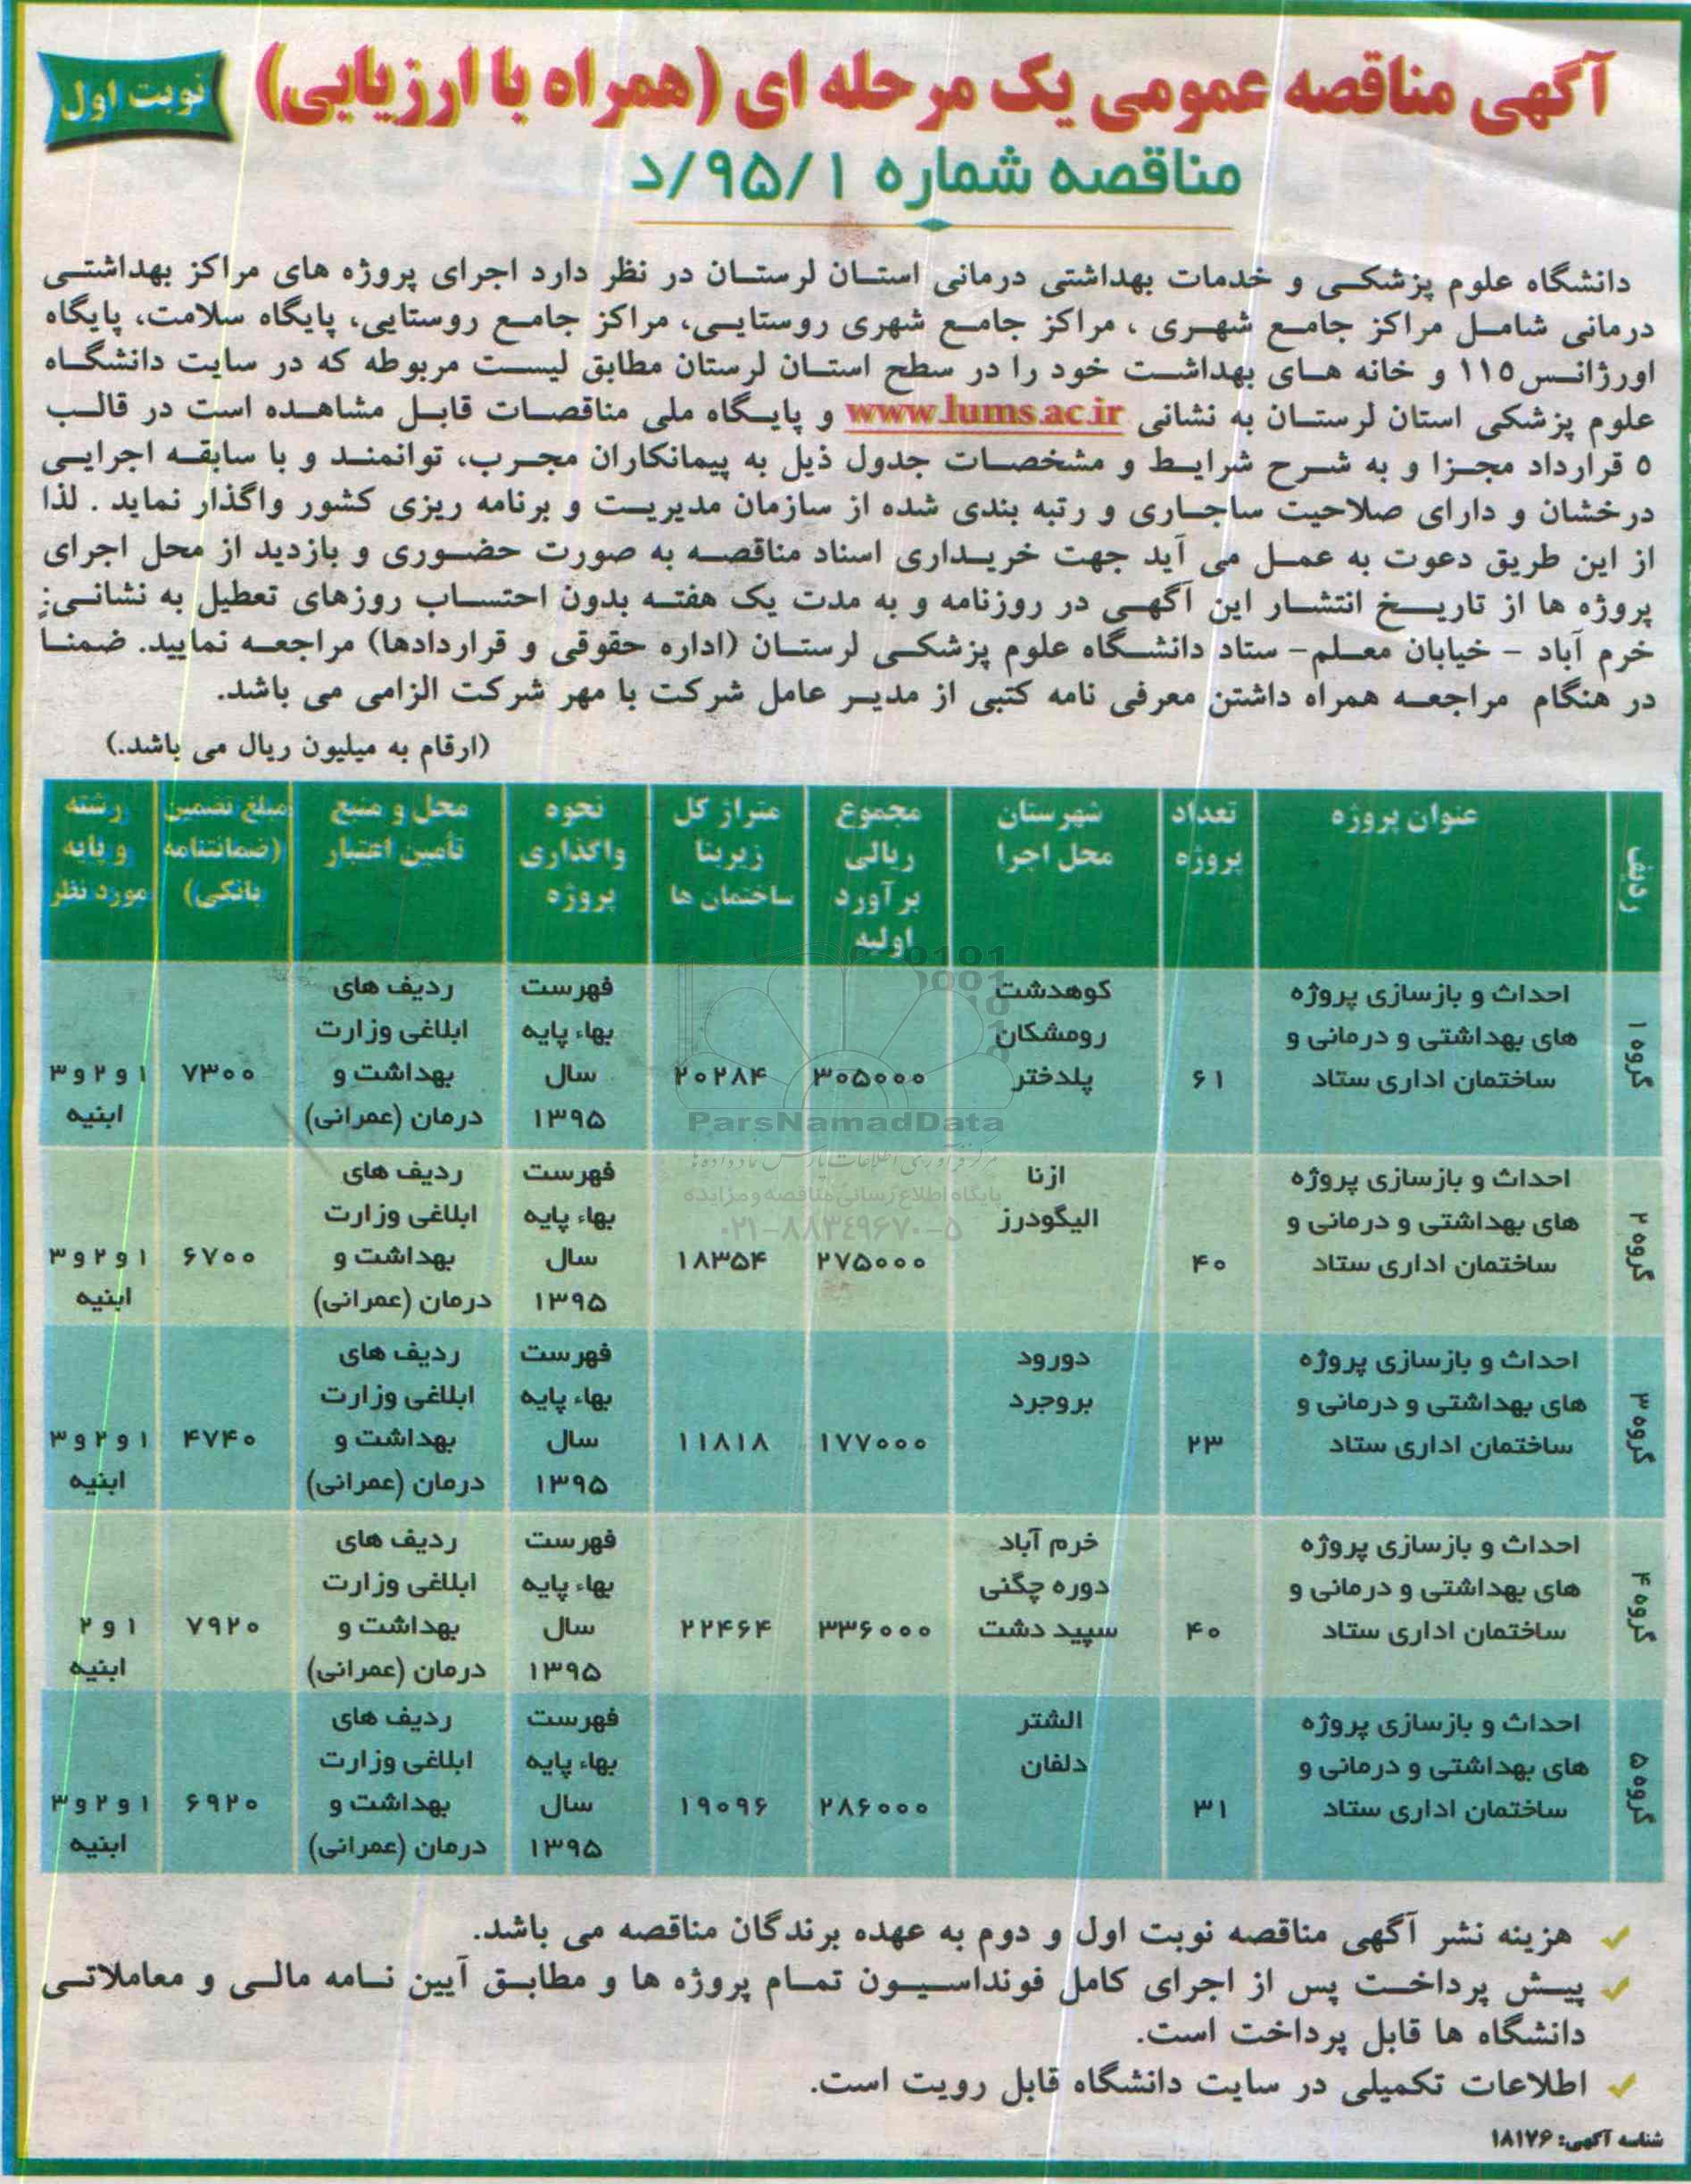 آگهی مناقصه عمومی یک مرحله ای (همراه با ارزیابی)
نوبت اول
مناقصه شماره ۹۵/۱/د
دانشگاه علوم پزشکی و خدمات بهداشتی درمانی استان لرستان در نظر دارد اجرای پروژه های مراکز بهداشتی
درمانی شامل مراکز جامع شهری ، مراکز جامع شهری روستایی، مراکز جامع روستایی، پایگاه سلامت، پایگاه
اورژانس۱۱۵ و خانه های بهداشت خود را در سطح استان لرستان مطابق لیست مربوطه که در سایت دانشگاه
علوم پزشکی استان لرستان به نشانی www.lums.ac.ir و پایگاه ملی مناقصات قابل مشاهده است در قالب
۵ قرارداد مجزا و به شرح شرایط و مشخصات جدول ذیل به پیمانکاران مجرب، توانمند و با سابقه اجرایی
درخشان و دارای صلاحیت ساجاری و رتبه بندی شده از سازمان مدیریت و برنامه ریزی کشور واگذار نماید . لذا
از این طریق دعوت به عمل می آید جهت خریداری اسناد مناقصه به صورت حضوری و بازدید از محل اجرای
پروژه ها از تاریخ انتشار این آگهی در روزنامه و به مدت یک هفته بدون احتساب روزهای تعطیل به نشانی:
خرم آباد - خیابان معلم- ستاد دانشگاه علوم پزشکی لرستان (اداره حقوقی و قراردادها) مراجعه نمایید. ضمنا
در هنگام مراجعه همراه داشتن معرفی نامه کتبی از مدیر عامل شرکت با مهر شرکت الزامی می باشد.
(ارقام به میلیون ریال می باشد.)
ردیف
عنوان پروژه
تعداد
پروژه
شهرستان
محل اجرا
مجموع
ریالی
برآورد
اولیه
متراژ کل
زیربنا
ساختمان ها
نحوه
واگذاری
پروژه
محل و منبع
تأمین اعتبار
مبلغ تضمین
(ضمانتنامه
بانکی)
رشته
و پایه
مورد نظر
گروه ۱
احداث و بازسازی پروژه
های بهداشتی و درمانی و
ساختمان اداری ستاد
۶۱
کوهدشت
رومشکان
پلدختر
۳۰۵۰۰۰
۲۰۲۸۴
فهرست
بهاء پایه
سال
۱۳۹۵
ردیف های
ابلاغی وزارت
بهداشت و
درمان (عمرانی)
۷۳۰۰
۱و۲و۳
ابنیه
گروه ۲
احداث و بازسازی پروژه
های بهداشتی و درمانی و
ساختمان اداری ستاد
۴۰
ازنا
الیگودرز
۲۷۵۰۰۰
۱۸۳۵۴
فهرست
بهاء پایه
سال
۱۳۹۵
ردیف های
ابلاغی وزارت
بهداشت و
درمان (عمرانی)
۶۷۰۰
۱و۲و۳
ابنیه
گروه ۳
احداث و بازسازی پروژه
های بهداشتی و درمانی و
ساختمان اداری ستاد
۲۳
دورود
بروجرد
۱۷۷۰۰۰
۱۱۸۱۸
فهرست
بهاء پایه
سال
۱۳۹۵
ردیف های
ابلاغی وزارت
بهداشت و
درمان (عمرانی)
۴۷۴۰
۱و۲و۳
ابنیه
گروه ۴
احداث و بازسازی پروژه
های بهداشتی و درمانی و
ساختمان اداری ستاد
۴۰
خرم آباد
دوره چگنی
سپید دشت
۳۳۶۰۰۰
۲۲۴۶۴
فهرست
بهاء پایه
سال
۱۳۹۵
ردیف های
ابلاغی وزارت
بهداشت و
درمان (عمرانی)
۷۹۲۰
۱و۲
ابنیه
گروه ۵
احداث و بازسازی پروژه
های بهداشتی و درمانی و
ساختمان اداری ستاد
۳۱
الشتر
دلفان
۲۸۶۰۰۰
۱۹۰۹۶
فهرست
بهاء پایه
سال
۱۳۹۵
ردیف های
ابلاغی وزارت
بهداشت و
درمان (عمرانی)
۶۹۲۰
۱و۲و۳
ابنیه
ParsNamadData
مرکز فرآوری اطلاعات پارس نماد داده ها
پایگاه اطلاع رسانی مناقصه و مزایده
۰۲۱-۸۸۳۴۹۶۷۰-۵
هزینه نشر آگهی مناقصه نوبت اول و دوم به عهده برندگان مناقصه می باشد.
پیش پرداخت پس از اجرای کامل فونداسیون تمام پروژه ها و مطابق آیین نامه مالی و معاملاتی
دانشگاه ها قابل پرداخت است.
اطلاعات تکمیلی در سایت دانشگاه قابل رویت است.
شناسه آگهی: ۱۸۱۷۶